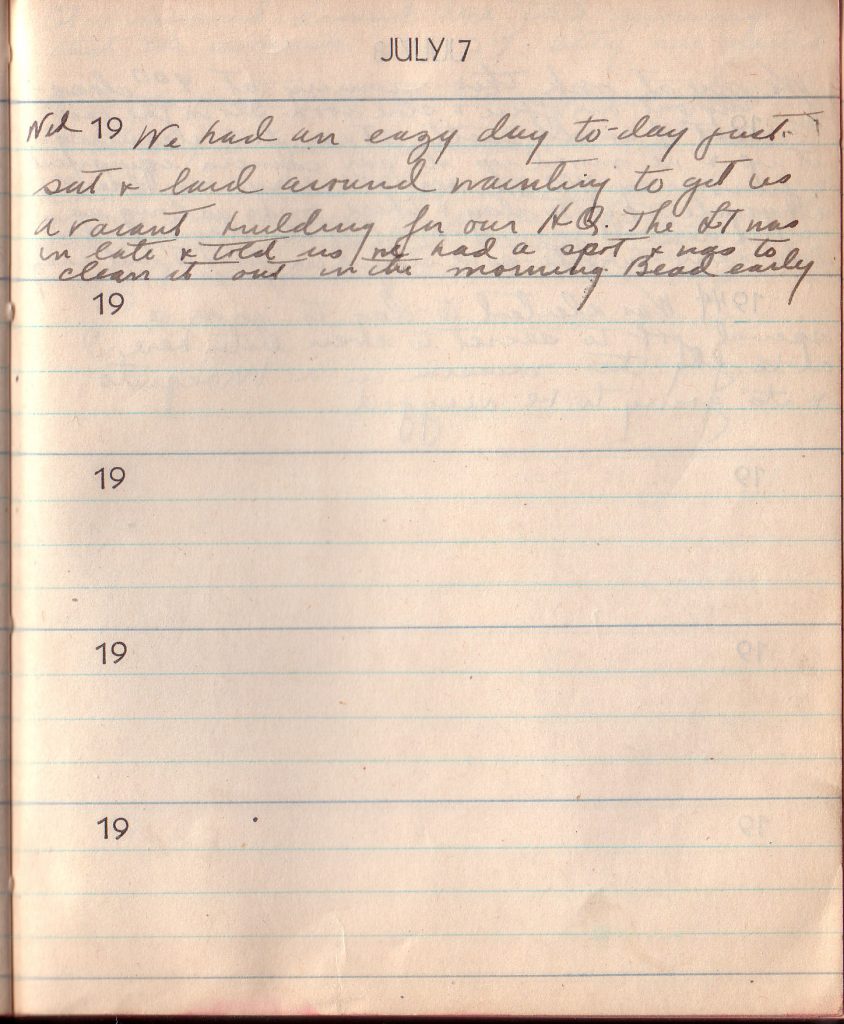 JULY 7
Wed 19 We had an eazy day to-day just
sat & laid around wainting to get us
a vacant building for our H.Q. The LT was
in late & told us we had a spot & was to
clean it out in the morning. Bead early
19
19
19
19